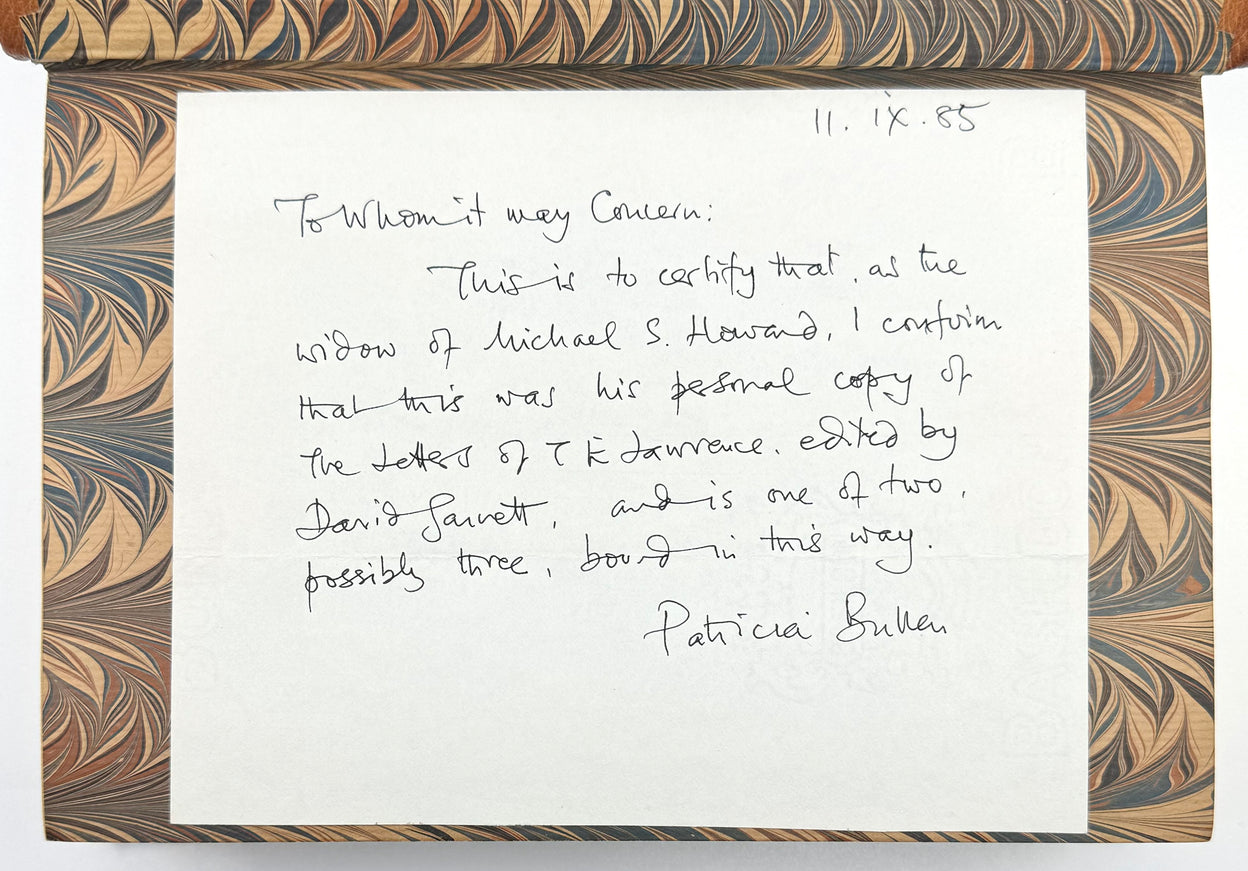 11. ix. 85
To Whom it may Concern:
This is to certify that, as the
widow of Michael S. Howard, I confirm
that this was his personal copy of
The Letters of T E Lawrence, edited by
David Garnett, and is one of two,
possibly three, bound in this way.
Patricia Bullen